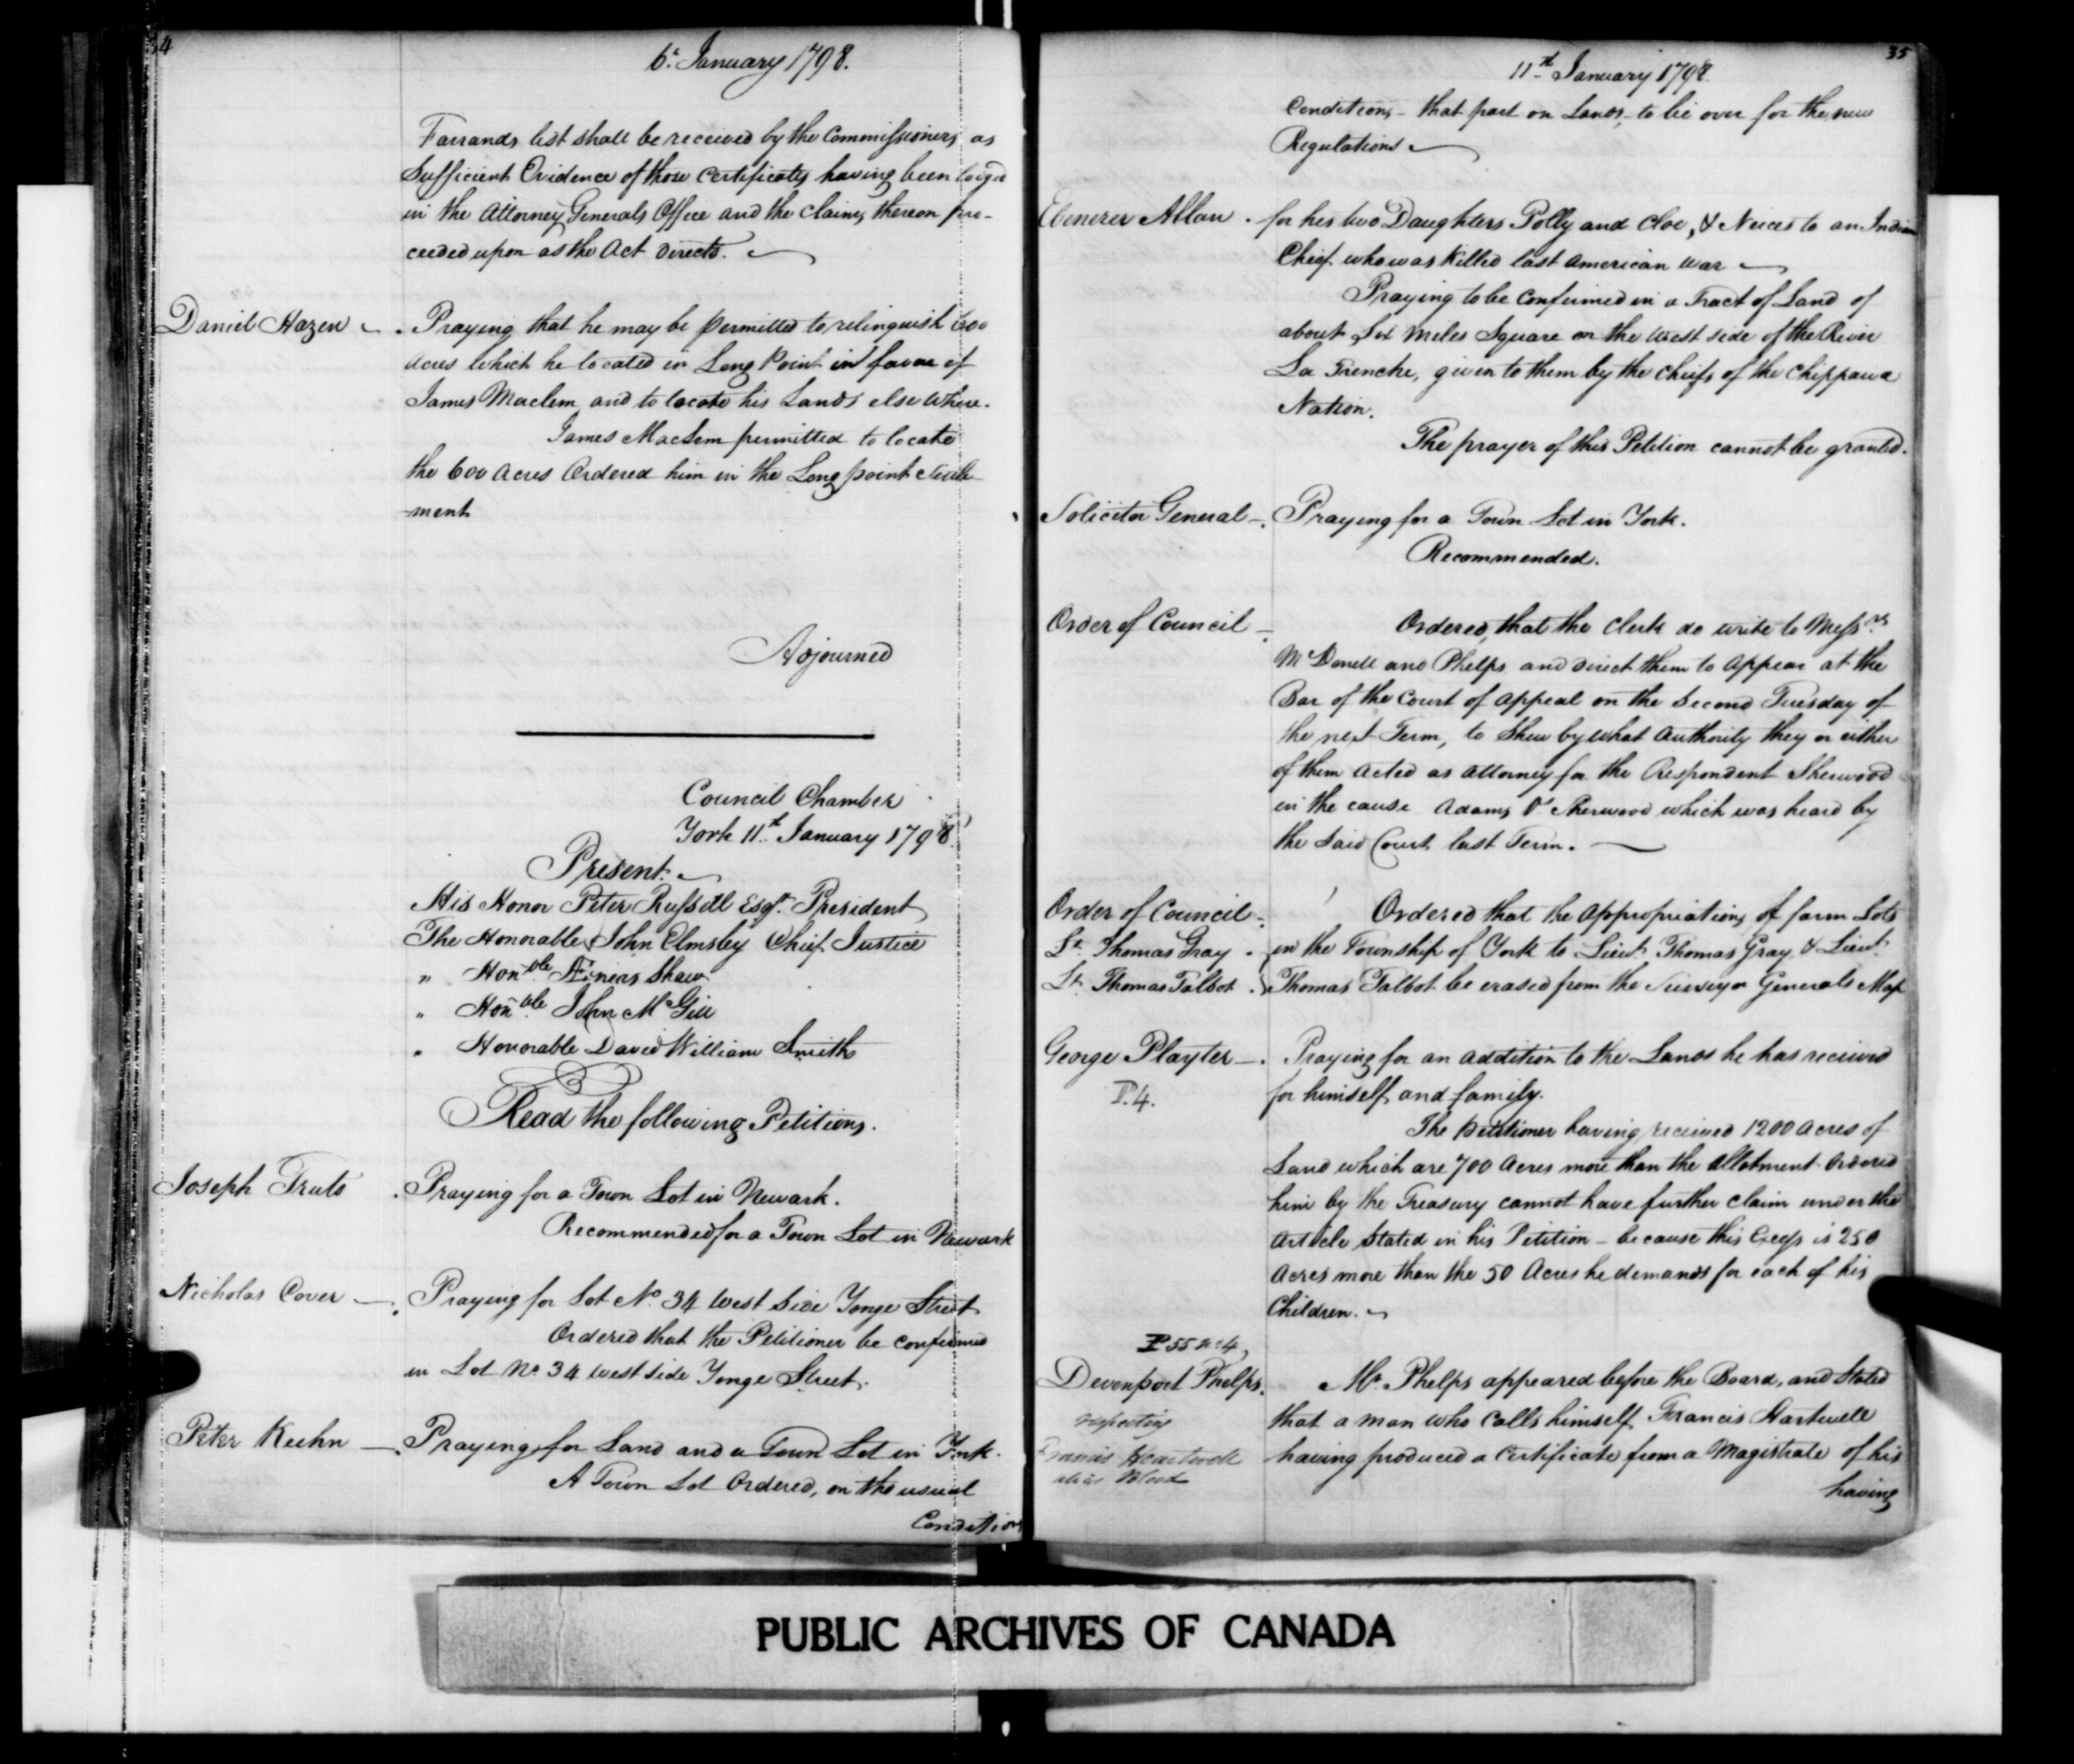 34
6th January 1798.
Farrands list shall be received by the Commissioners as
Sufficient Evidence of those Certificates having been lodged
in the Attorney Generals Office and the Claims thereon pro-
ceeded upon as the Act directs.
Daniel Hazen - . Praying that he may be permitted to relinquish 600
acres which he located in Long Point in favor of
James Maclem and to locate his Lands else where.
James Maclem permitted to locate
the 600 Acres Ordered him in the Long point Settle-
-ment
Adjourned
Council Chamber
York 11th January 1798.
Present.
His Honor Peter Russell Esqr. President
The Honorable John Elmsley Chief Justice
" Honble Æneas Shaw
" Honble John McGill
" Honorable David William Smith
Read the following Petitions.
Joseph . Praying for a Town Lot in Newark.
Recommended for a Town Lot in Newark
Nicholas Cover - . Praying for Lot No. 34 West Side Yonge Street
Ordered that the Petitioner be confirmed
in Lot No. 34 west side Yonge Street.
Peter Kuhn - . Praying for Land and a Town Lot in York.
A Town Lot Ordered, on the usual
Conditions
35
11th January 1798.
Conditions - that part on Lands, to lie over for the new
Regulations
Ebenezer Allan . for his two Daughters Polly and Cloe, & Neices to an Indian
Chief who was killed last American War
Praying to be confirmed in a Tract of Land of
about Six Miles Square on the West side of the River
La Trenche, given to them by the Chiefs of the Chippawa
Nation.
The prayer of this Petition cannot be granted.
Solicitor General - . Praying for a Town Lot in York.
Recommended.
Order of Council - . Ordered, that the Clerk do write to Messrs
McDonell and Phelps and direct them to appear at the
Bar of the Court of Appeal on the Second Tuesday of
the next Term, to Shew by what Authority they or either
of them Acted as Attorney for the Respondent Sherwood
in the cause Adams Vs Sherwood which was heard by
the Said Court last Term.
Order of Council - . Ordered that the Appropriations of farm Lots
Lt. Thomas Gray . in the Township of York to Lieut. Thomas Gray & Lieut.
Lt. Thomas Talbot . Thomas Talbot be erased from the Surveyor Generals Map
George Playter - . Praying for an addition to the Lands he has received
P. 4. for himself and family.
The Petitioner having received 1200 Acres of
Land which are 700 Acres more than the allotment Ordered
him by the Treasury cannot have further claim under the
Article Stated in his Petition - because this Excess is 250
Acres more than the 50 Acres he demands for each of his
Children.
P 55 No. 4
Devenport Phelps. Mr. Phelps appeared before the Board, and Stated
respecting that a man who Calls himself Francis Hartwell
Francis Heartwell having produced a Certificate from a Magistrate of his
alias Blood
having
PUBLIC ARCHIVES OF CANADA